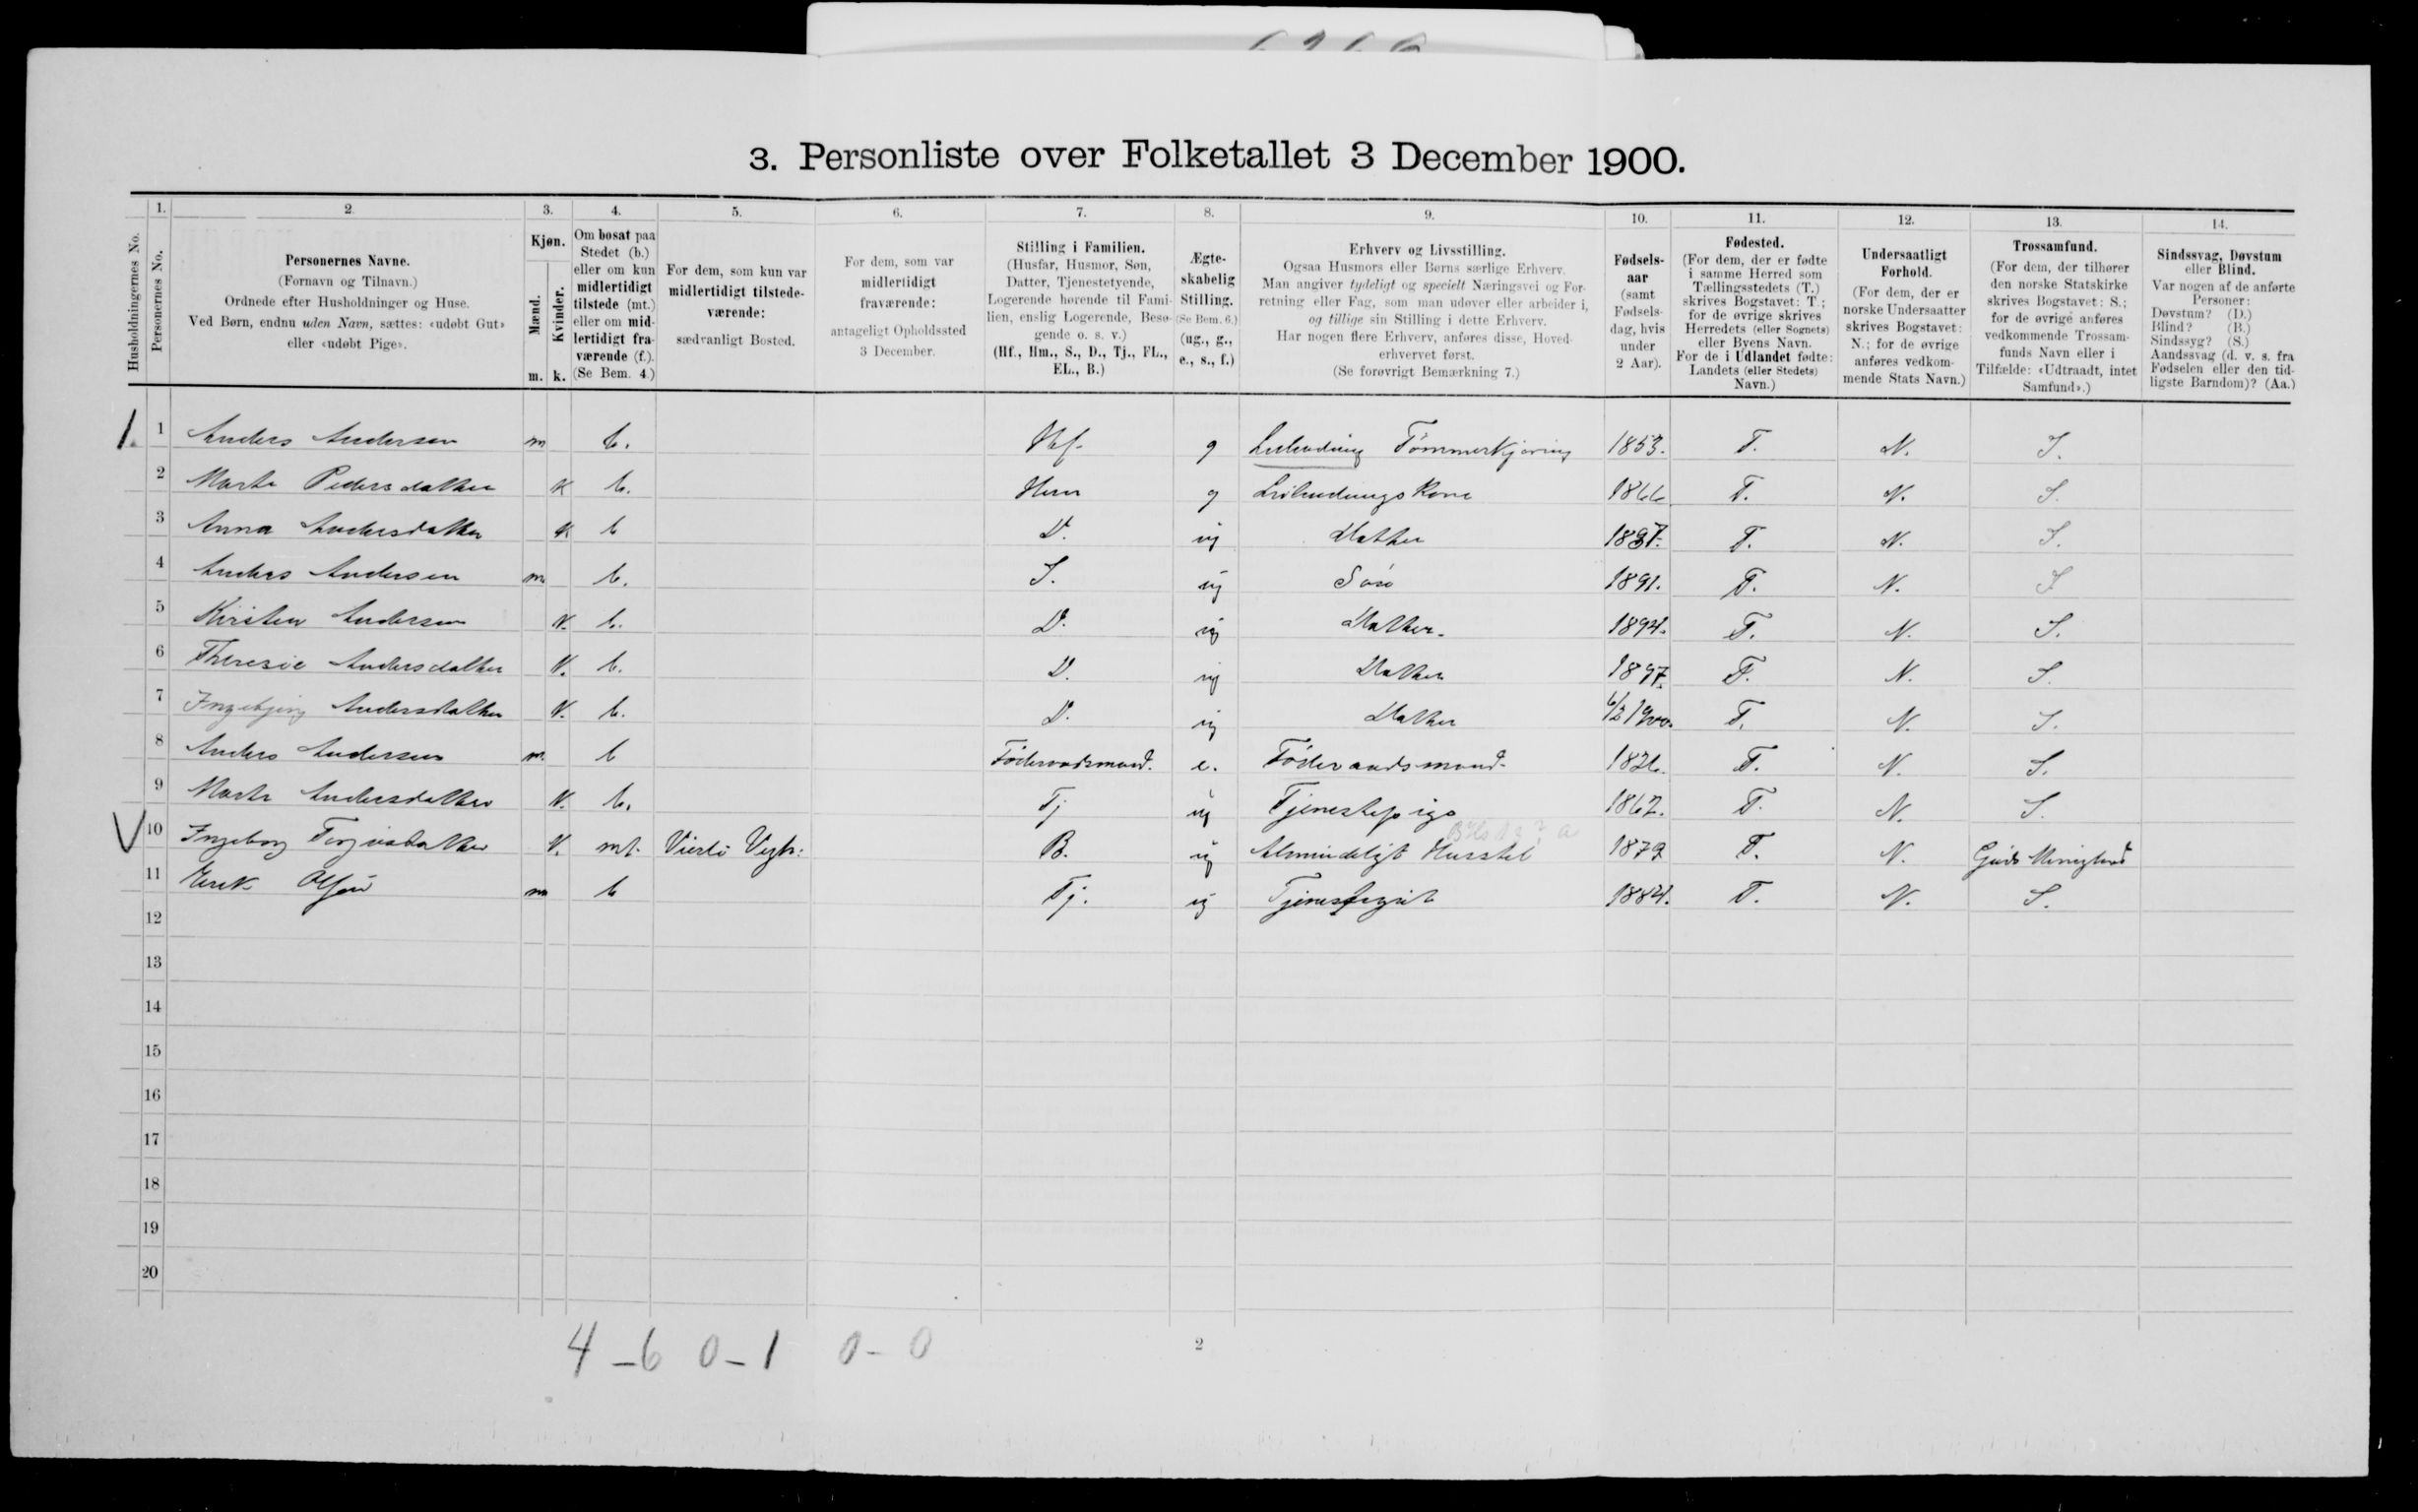 3. Personliste over Folketallet 3 December 1900.
1. 2. 3. 4. 5. 6. 7. 8. 9. 10. 11. 12. 13. 14.
Husholdningernes No.
Personernes No.
Personernes Navne.
(Fornavn og Tilnavn.)
Ordnede efter Husholdninger og Huse.
Ved Børn, endnu uden Navn, sættes: «udøbt Gut»
eller «udøbt Pige».
Kjøn.
Mænd.
Kvinder.
m. k.
Om bosat paa
Stedet (b.)
eller om kun
midlertidigt
tilstede (mt.)
eller om mid-
lertidigt fra-
værende (f.).
(Se Bem. 4.)
For dem, som kun var
midlertidigt tilstede-
værende:
sædvanligt Bosted.
For dem, som var
midlertidigt
fraværende:
antageligt Opholdssted
3 December.
Stilling i Familien.
(Husfar, Husmor, Søn,
Datter, Tjenestetyende,
Logerende hørende til Fami-
lien, enslig Logerende, Besø-
gende o. s. v.)
(Hf., Hm., S., D., Tj., FL.,
EL., B.)
Ægte-
skabelig
Stilling.
(Se Bem. 6.)
(ug., g.,
e., s., f.)
Erhverv og Livsstilling.
Ogsaa Husmors eller Børns særlige Erhverv.
Man angiver tydeligt og specielt Næringsvei og For-
retning eller Fag, som man udøver eller arbeider i,
og tillige sin Stilling i dette Erhverv.
Har nogen flere Erhverv, anføres disse, Hoved-
erhvervet først.
(Se forøvrigt Bemærkning 7.)
Fødsels-
aar
(samt
Fødsels-
dag, hvis
under
2 Aar).
Fødested.
(For dem, der er fødte
i samme Herred som
Tællingsstedets (T.)
skrives Bogstavet: T.;
for de øvrige skrives
Herredets (eller Sognets)
eller Byens Navn.
For de i Udlandet fødte:
Landets (eller Stedets)
Navn.)
Undersaatligt
Forhold.
(For dem, der er
norske Undersaatter
skrives Bogstavet:
N.; for de øvrige
anføres vedkom-
mende Stats Navn.)
Trossamfund.
(For dem, der tilhører
den norske Statskirke
skrives Bogstavet: S.;
for de øvrige anføres
vedkommende Trossam-
funds Navn eller i
Tilfælde: «Udtraadt, intet
Samfund».)
Sindssvag, Døvstum
eller Blind.
Var nogen af de anførte
Personer:
Døvstum? (D.)
Blind? (B.)
Sindssyg? (S.)
Aandssvag (d. v. s. fra
Fødselen eller den tid-
ligste Barndom)? (Aa.)
1. 1 Anders Andersen m b. Hf. g Tømmerkjøring 1853. T. N. S.
2 Marte Pedersdatter k b. Hm g 1866 T. N. S.
3 Anna Andersdatter k b D. ug Datter T. N. S.
4 Anders Andersen m b. S. ug Søn 1891. T. N. S
5 Kirsten Andersen k. b. D. ug Datter. 1894. T. N. S.
6 Theresie Andersdatter k. b. D. ug Datter 1897. T. N. S.
7 Ingebjørg Andersdatter k. b. D. ug Datter 6/2 1900. T. N. S.
8 Anders Andersen m. b Føderaadsmand. e. Føderaadsmand. 1826. T. N. S.
9 Marte Andersdatter k. b. Tj ug Tjenestepige 1862. T. N. S.
V 10 Ingeborg k. mt. B. ug Almindeligt Husstel 1879 T. N.
11 Erik Olsen m b Tj. ug Tjenestegut 1884. T. N. S.
12
13
14
15
16
17
18
19
20
4 - 6 0 - 1 0 - 0
2